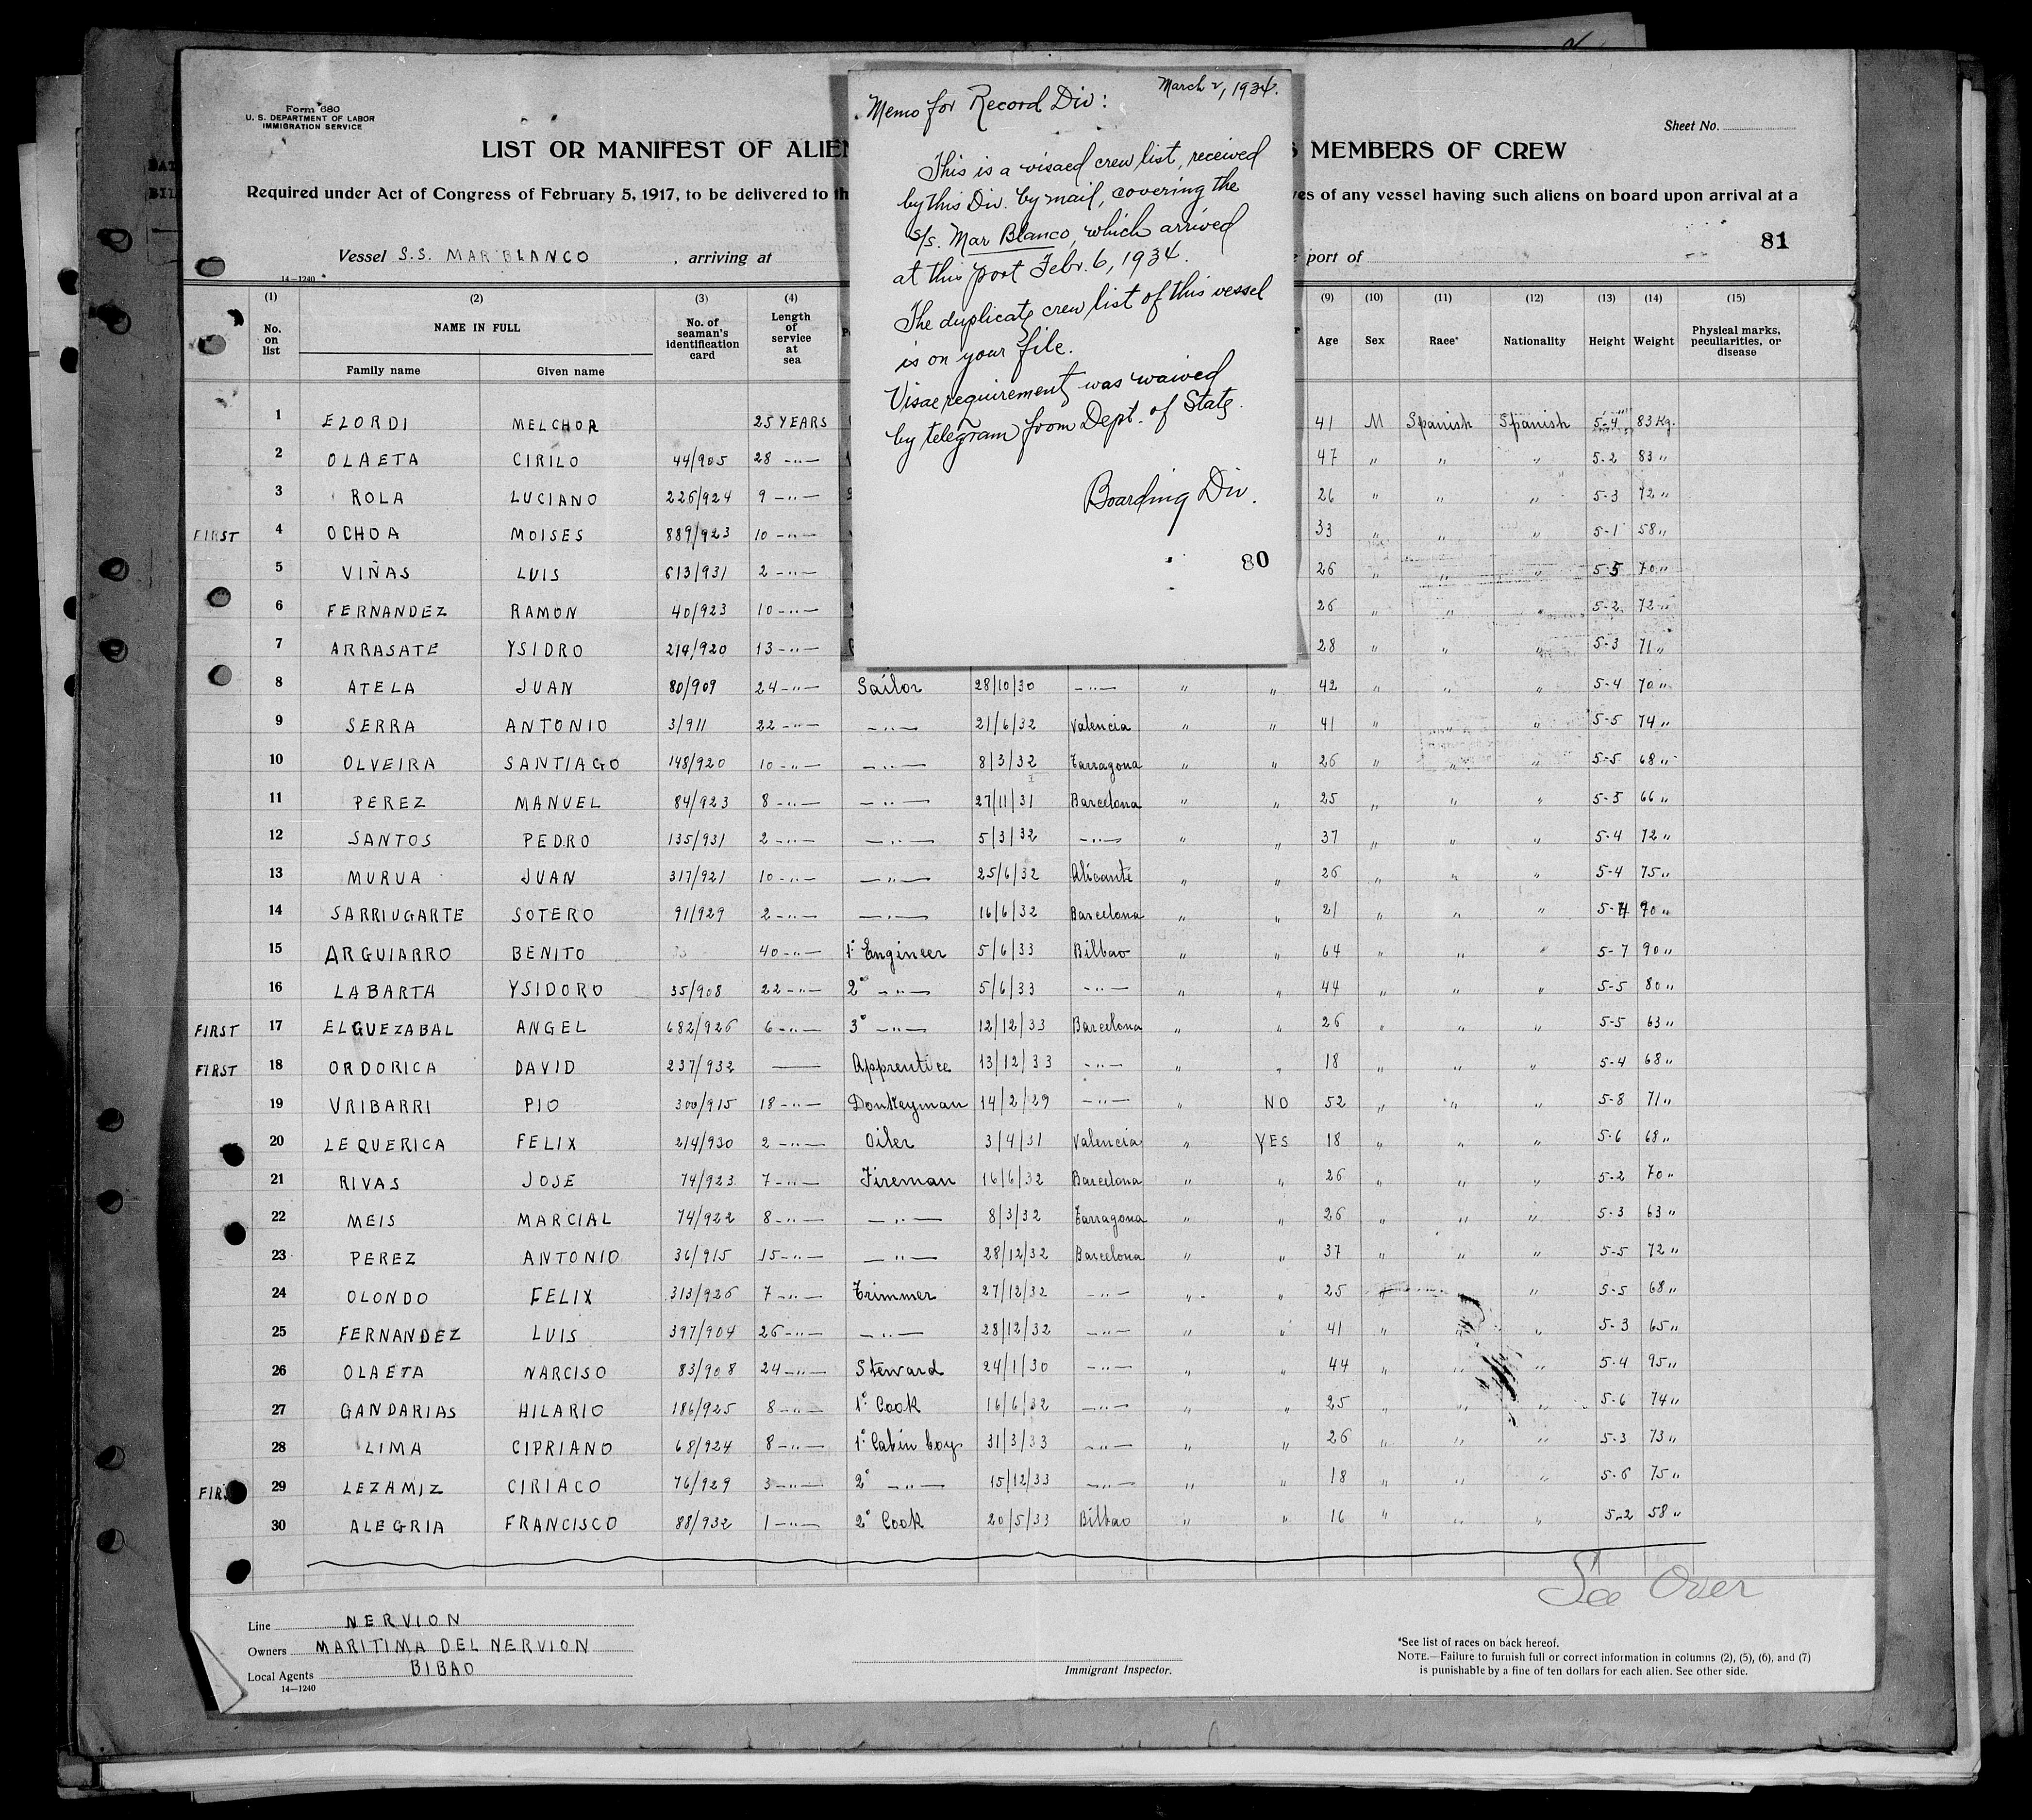 Form 680
U. S. DEPARTMENT OF LABOR
IMMIGRATION SERVICE
March 2, 1934.
Memo for Record Div:
This is a visaed crew list, received
by this Div. by mail, covering the
s/s. Mar Blanco, which arrived
at this port Febr. 6, 1934.
The duplicate crew list of this vessel
is on your file.
Visae requirement was waived
by telegram from Dept. of State.
Boarding Div.
80
Sheet No.
LIST OR MANIFEST OF ALIEN MEMBERS OF CREW
Required under Act of Congress of February 5, 1917, to be delivered to th es of any vessel having such aliens on board upon arrival at a
81
Vessel S.S. MAR BLANCO , arriving at port of
14—1240
(1) (2) (3) (4) (9) (10) (11) (12) (13) (14) (15)
No. on list NAME IN FULL Family name Given name No. of seaman's identification card Length of service at sea Age Sex Race* Nationality Height Weight Physical marks, peculiarities, or disease
1 ELORDI MELCHOR 25 YEARS 41 M Spanish Spanish 5-4 83 Kg.
2 OLAETA CIRILO 44/905 28 -"- 47 " " " 5-2 83 "
3 ROLA LUCIANO 226/924 9 -"- 26 " " " 5-3 72 "
FIRST 4 OCHOA MOISES 889/923 10 -"- 33 " " " 5-1 58 "
5 VIÑAS LUIS 613/931 2 -"- 26 " " " 5-5 70 "
6 FERNANDEZ RAMON 40/923 10 -"- 26 " " " 5-2 72 "
7 ARRASATE YSIDRO 219/920 13 -"- 28 " " " 5-3 71 "
8 ATELA JUAN 80/909 24 -"- Sailor 28/10/30 -"- " " 42 " " " 5-4 70 "
9 SERRA ANTONIO 3/911 22 -"- -"- 21/6/32 Valencia " " 41 " " " 5-5 74 "
10 OLVEIRA SANTIAGO 148/920 10 -"- -"- 8/3/32 Tarragona " " 26 " " " 5-5 68 "
11 PEREZ MANUEL 84/923 8 -"- -"- 27/11/31 Barcelona " " 25 " " " 5-5 66 "
12 SANTOS PEDRO 135/931 2 -"- -"- 5/3/32 -"- " " 37 " " " 5-4 72 "
13 MURUA JUAN 317/921 10 -"- -"- 25/6/32 Alicante " " 26 " " " 5-4 75 "
14 SARRIUGARTE SOTERO 91/929 2 -"- -"- 16/6/32 Barcelona " " 21 " " " 5-4 70 "
15 ARGUIARRO BENITO 40 -"- 1º Engineer 5/6/33 Bilbao " " 64 " " " 5-7 90 "
16 LABARTA YSIDORO 35/908 22 -"- 2º -"- 5/6/33 -"- " " 44 " " " 5-5 80 "
FIRST 17 ELGUEZABAL ANGEL 682/926 6 -"- 3º -"- 12/12/33 Barcelona " " 26 " " " 5-5 63 "
FIRST 18 ORDORICA DAVID 237/932 — Apprentice 13/12/33 -"- " " 18 " " " 5-4 68 "
19 VRIBARRI PIO 300/915 18 -"- Donkeyman 14/2/29 -"- " NO 52 " " " 5-8 71 "
20 LEQUERICA FELIX 214/930 2 -"- Oiler 3/4/31 Valencia " YES 18 " " " 5-6 68 "
21 RIVAS JOSE 74/923 7 -"- Fireman 16/6/32 Barcelona " " 26 " " " 5-2 70 "
22 MEIS MARCIAL 74/922 8 -"- -"- 8/3/32 Tarragona " " 26 " " " 5-3 63 "
23 PEREZ ANTONIO 36/915 15 -"- -"- 28/12/32 Barcelona " " 37 " " " 5-5 72 "
24 OLONDO FELIX 313/926 7 -"- Trimmer 27/12/32 -"- " " 25 " " " 5-5 68 "
25 FERNANDEZ LUIS 397/904 26 -"- -"- 28/12/32 -"- " " 41 " " " 5-3 65 "
26 OLAETA NARCISO 83/908 24 -"- Steward 24/1/30 -"- " " 44 " " " 5-4 95 "
27 GANDARIAS HILARIO 186/925 8 -"- 1º Cook 16/6/32 -"- " " 25 " " " 5-6 74 "
28 LIMA CIPRIANO 68/924 8 -"- 1º Cabin boy 31/3/33 -"- " " 26 " " " 5-3 73 "
FIRST 29 LEZAMIZ CIRIACO 76/929 3 -"- 2º -"- 15/12/33 -"- " " 18 " " " 5-6 75 "
30 ALEGRIA FRANCISCO 88/932 1 -"- 2º Cook 20/5/33 Bilbao " " 16 " " " 5-2 58 "
See Over
Line NERVION
Owners MARITIMA DEL NERVION
Local Agents BIBAO
14—1240
Immigrant Inspector.
*See list of races on back hereof.
NOTE.—Failure to furnish full or correct information in columns (2), (5), (6), and (7)
is punishable by a fine of ten dollars for each alien. See other side.